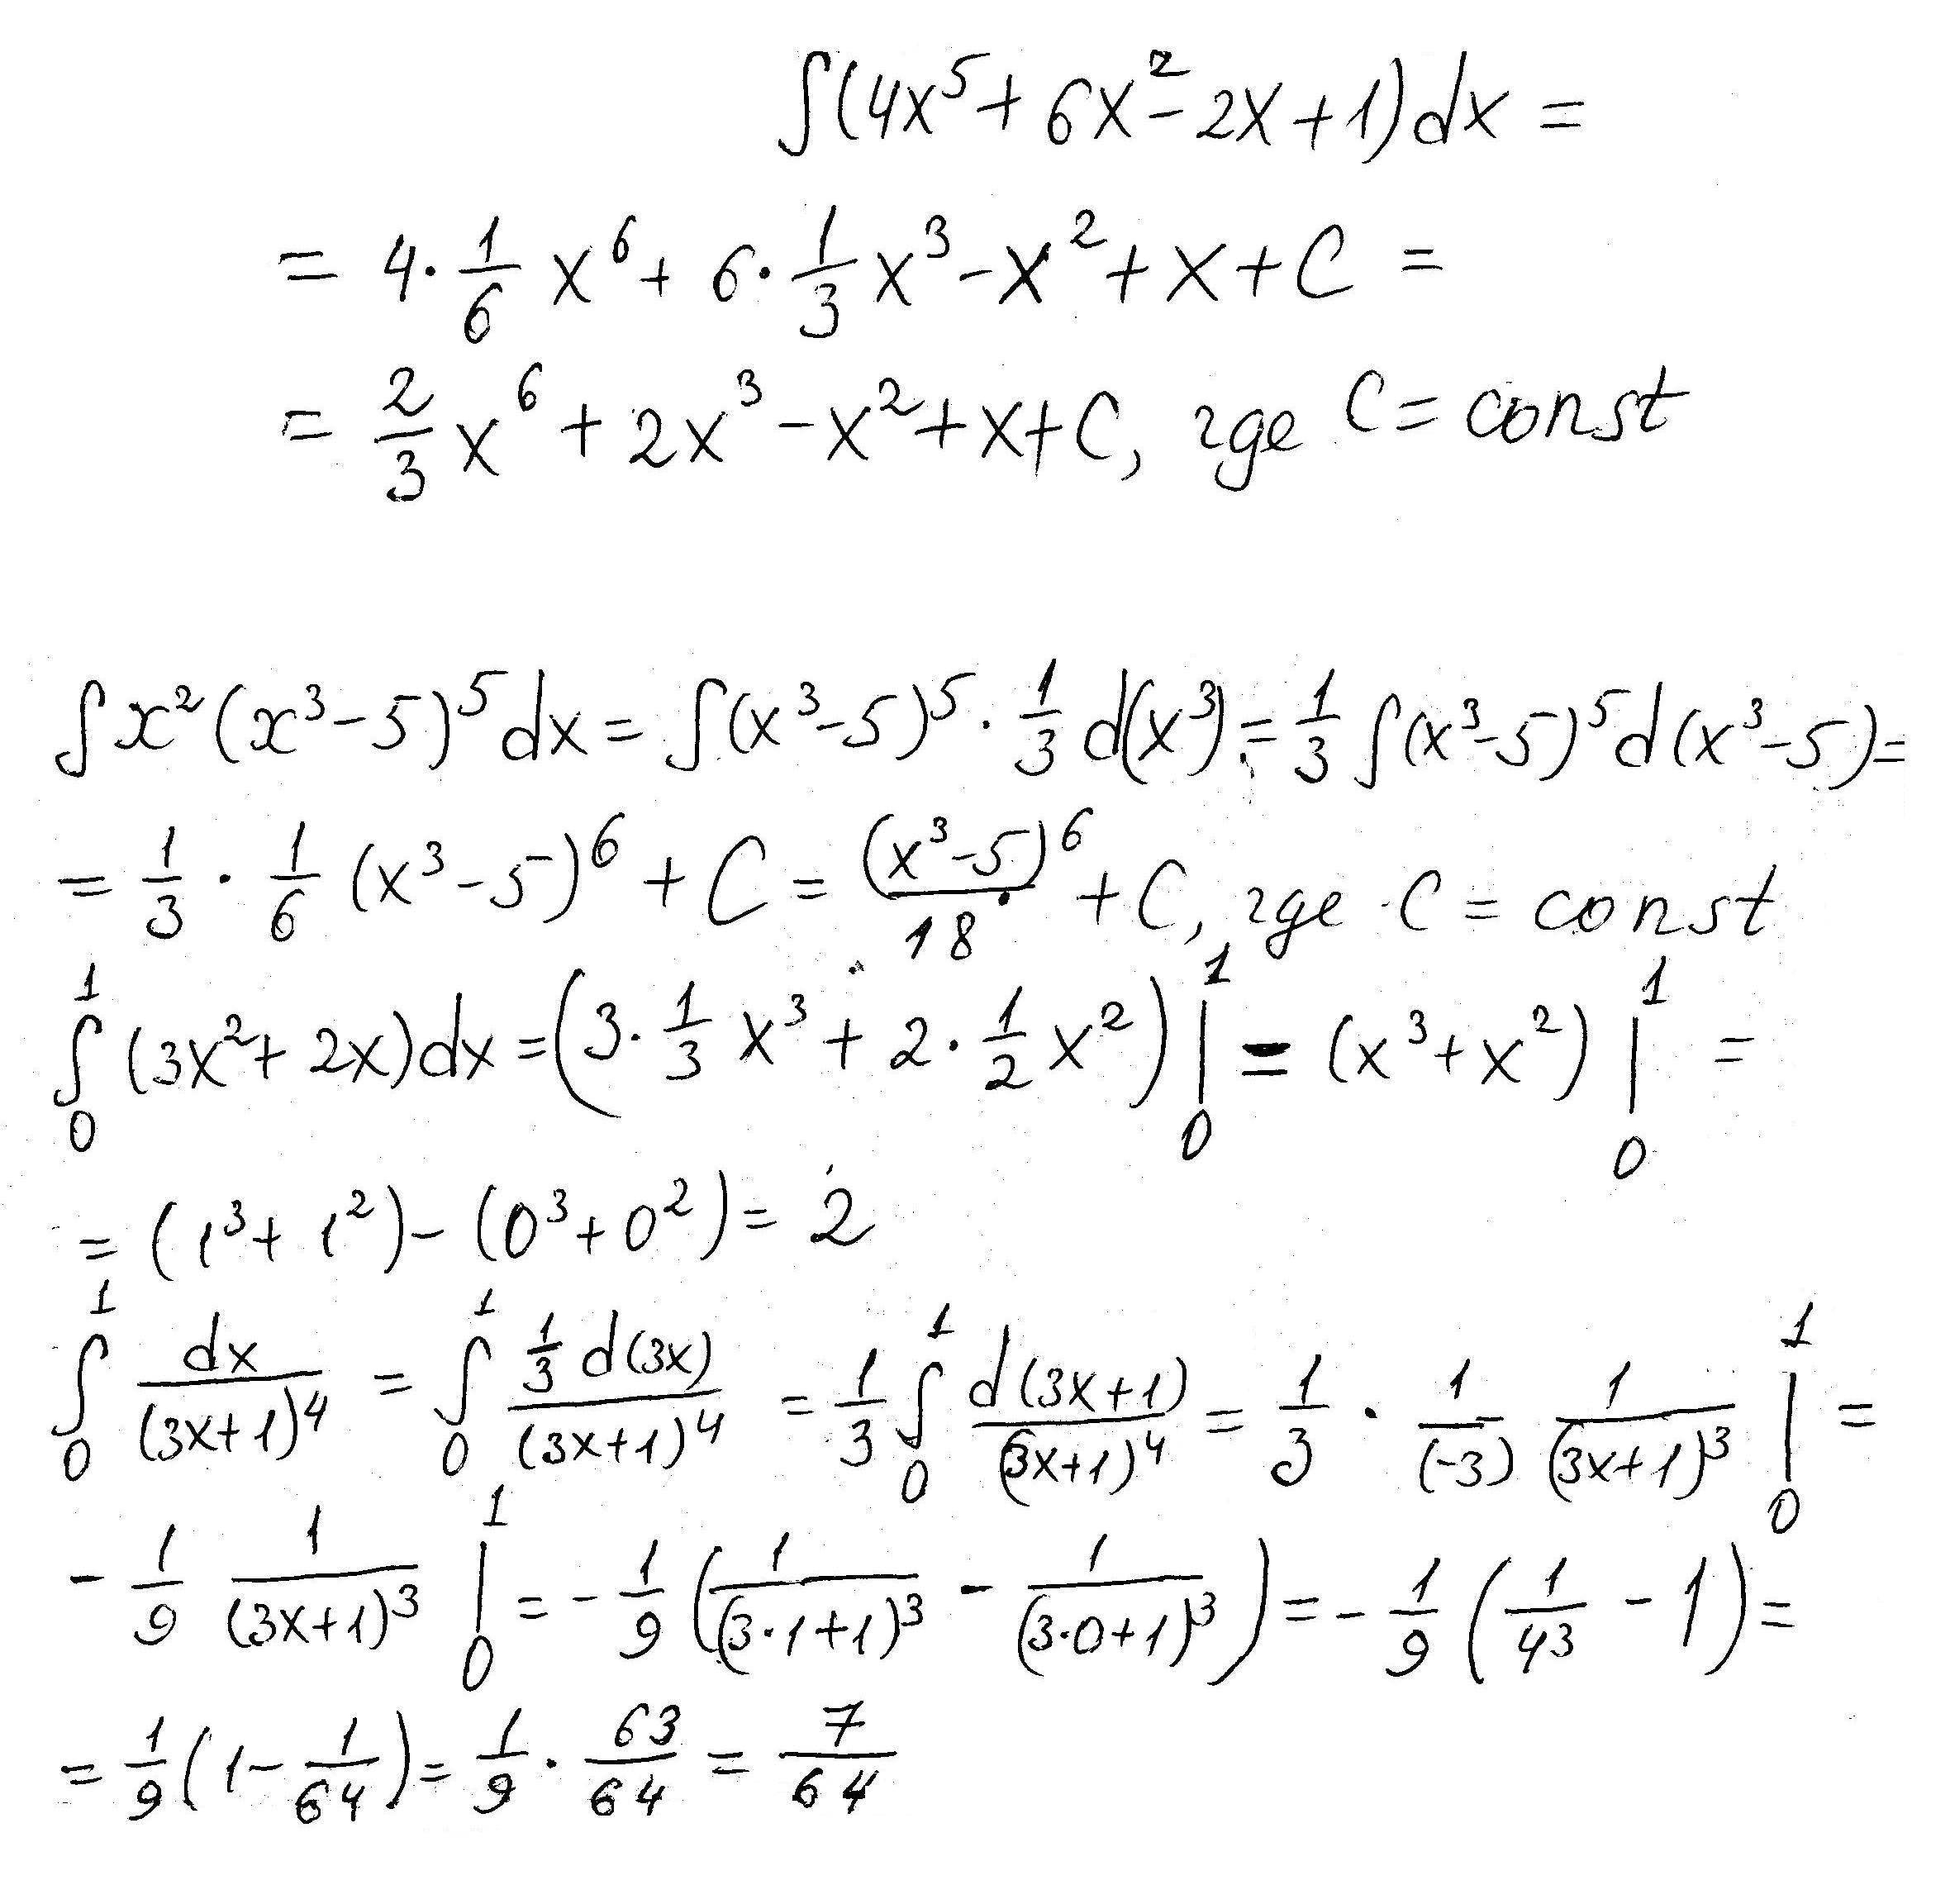 ∫(4x⁵ + 6x² - 2x + 1)dx =
= 4 · 1/6 x⁶ + 6 · 1/3 x³ - x² + x + C =
= 2/3 x⁶ + 2x³ - x² + x + C, где C = const
∫x²(x³ - 5)⁵dx = ∫(x³ - 5)⁵ · 1/3 d(x³) = 1/3 ∫(x³ - 5)⁵d(x³ - 5) =
= 1/3 · 1/6 (x³ - 5)⁶ + C = (x³ - 5)⁶/18 + C, где C = const
∫₀¹(3x² + 2x)dx = (3 · 1/3 x³ + 2 · 1/2 x²)|₀¹ = (x³ + x²)|₀¹ =
= (1³ + 1²) - (0³ + 0²) = 2
∫₀¹ dx/(3x+1)⁴ = ∫₀¹ 1/3 d(3x)/(3x+1)⁴ = 1/3 ∫₀¹ d(3x+1)/(3x+1)⁴ = 1/3 · 1/(-3) 1/(3x+1)³ |₀¹ =
- 1/9 1/(3x+1)³ |₀¹ = - 1/9 (1/(3·1+1)³ - 1/(3·0+1)³) = - 1/9 (1/4³ - 1) =
= 1/9 (1 - 1/64) = 1/9 · 63/64 = 7/64